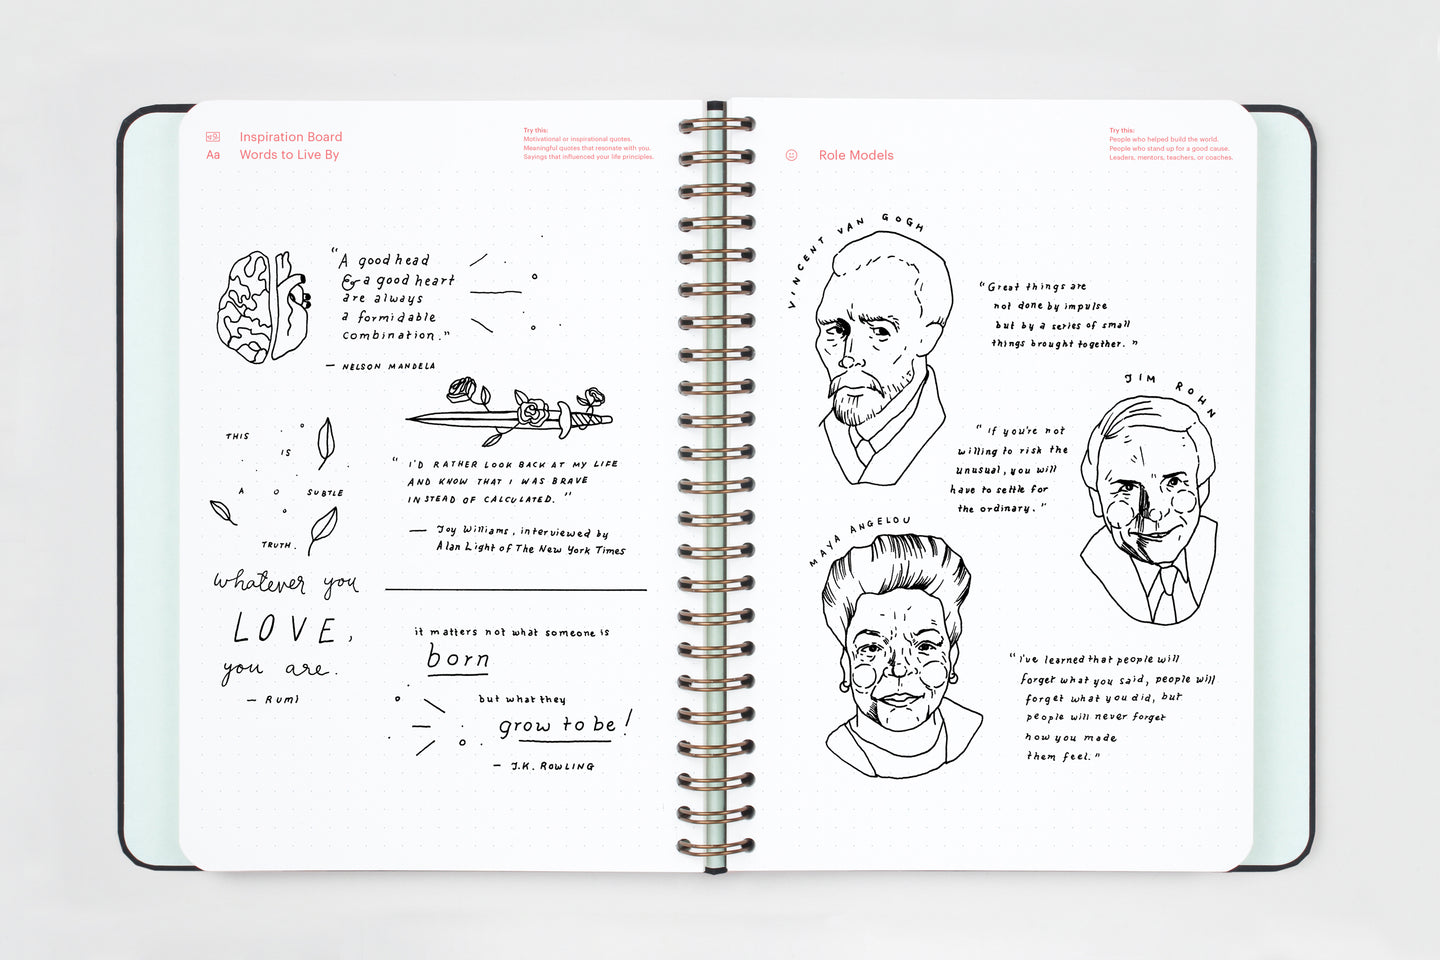 Inspiration Board
Aa Words to Live By
Try this:
Motivational or inspirational quotes.
Meaningful quotes that resonate with you.
Sayings that influenced your life principles.
"A good head
& a good heart
are always
a formidable
combination."
— NELSON MANDELA
THIS
IS
A SUBTLE
TRUTH.
whatever you
LOVE,
you are.
— Rumi
"I'D RATHER LOOK BACK AT MY LIFE
AND KNOW THAT I WAS BRAVE
INSTEAD OF CALCULATED."
— Joy Williams, interviewed by
Alan Light of The New York Times
it matters not what someone is
born
but what they
grow to be!
— J.K. ROWLING
Role Models
Try this:
People who helped build the world.
People who stand up for a good cause.
Leaders, mentors, teachers, or coaches.
VINCENT VAN GOGH
"Great things are
not done by impulse
but by a series of small
things brought together."
JIM ROHN
"If you're not
willing to risk the
unusual, you will
have to settle for
the ordinary."
MAYA ANGELOU
"i've learned that people will
forget what you said, people will
forget what you did, but
people will never forget
how you made
them feel."